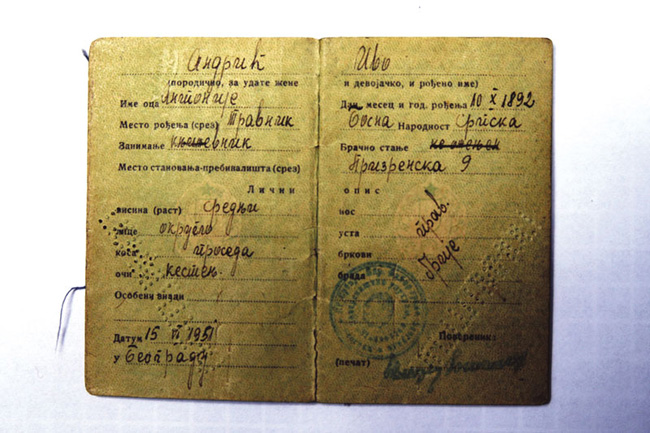 Андрић
(породично, за удате жене
Име оца Антоније
Место рођења (срез) Травник
Занимање књижевник
Место становања-пребивалишта (срез)
Лични
висина (раст) средњи
лице округло
коса проседа
очи кестењ.
Особени знаци
Датум 15 VI 1951
у Београду
Иво
и девојачко, и рођено име)
Дан месец и год. рођења 10 X 1892
Босна Народност Српска
Брачно стање неожењен
Призренска 9
опис
нос прав.
уста
бркови брије
брада
Повереник
(печат)